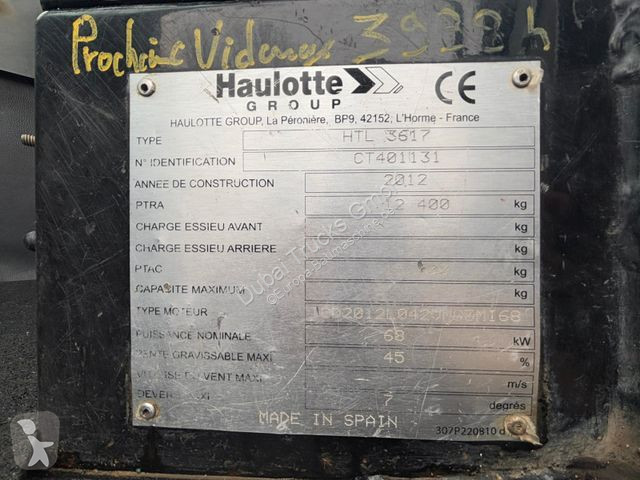 Prochaine Vidange 3922 h
Haulotte
GROUP
CE
HAULOTTE GROUP, La Péronière, BP9, 42152, L'Horme - France
TYPE HTL 3617
N° IDENTIFICATION CT401131
ANNEE DE CONSTRUCTION 2012
PTRA 12 400 kg
CHARGE ESSIEU AVANT kg
CHARGE ESSIEU ARRIERE kg
PTAC kg
CAPACITE MAXIMUM kg
TYPE MOTEUR
PUISSANCE NOMINALE 68 kW
PENTE GRAVISSABLE MAXI 45 %
VITESSE DU VENT MAXI m/s
DEVERS MAXI 7 degrés
MADE IN SPAIN
307P220810 d
Dubai Trucks GmbH